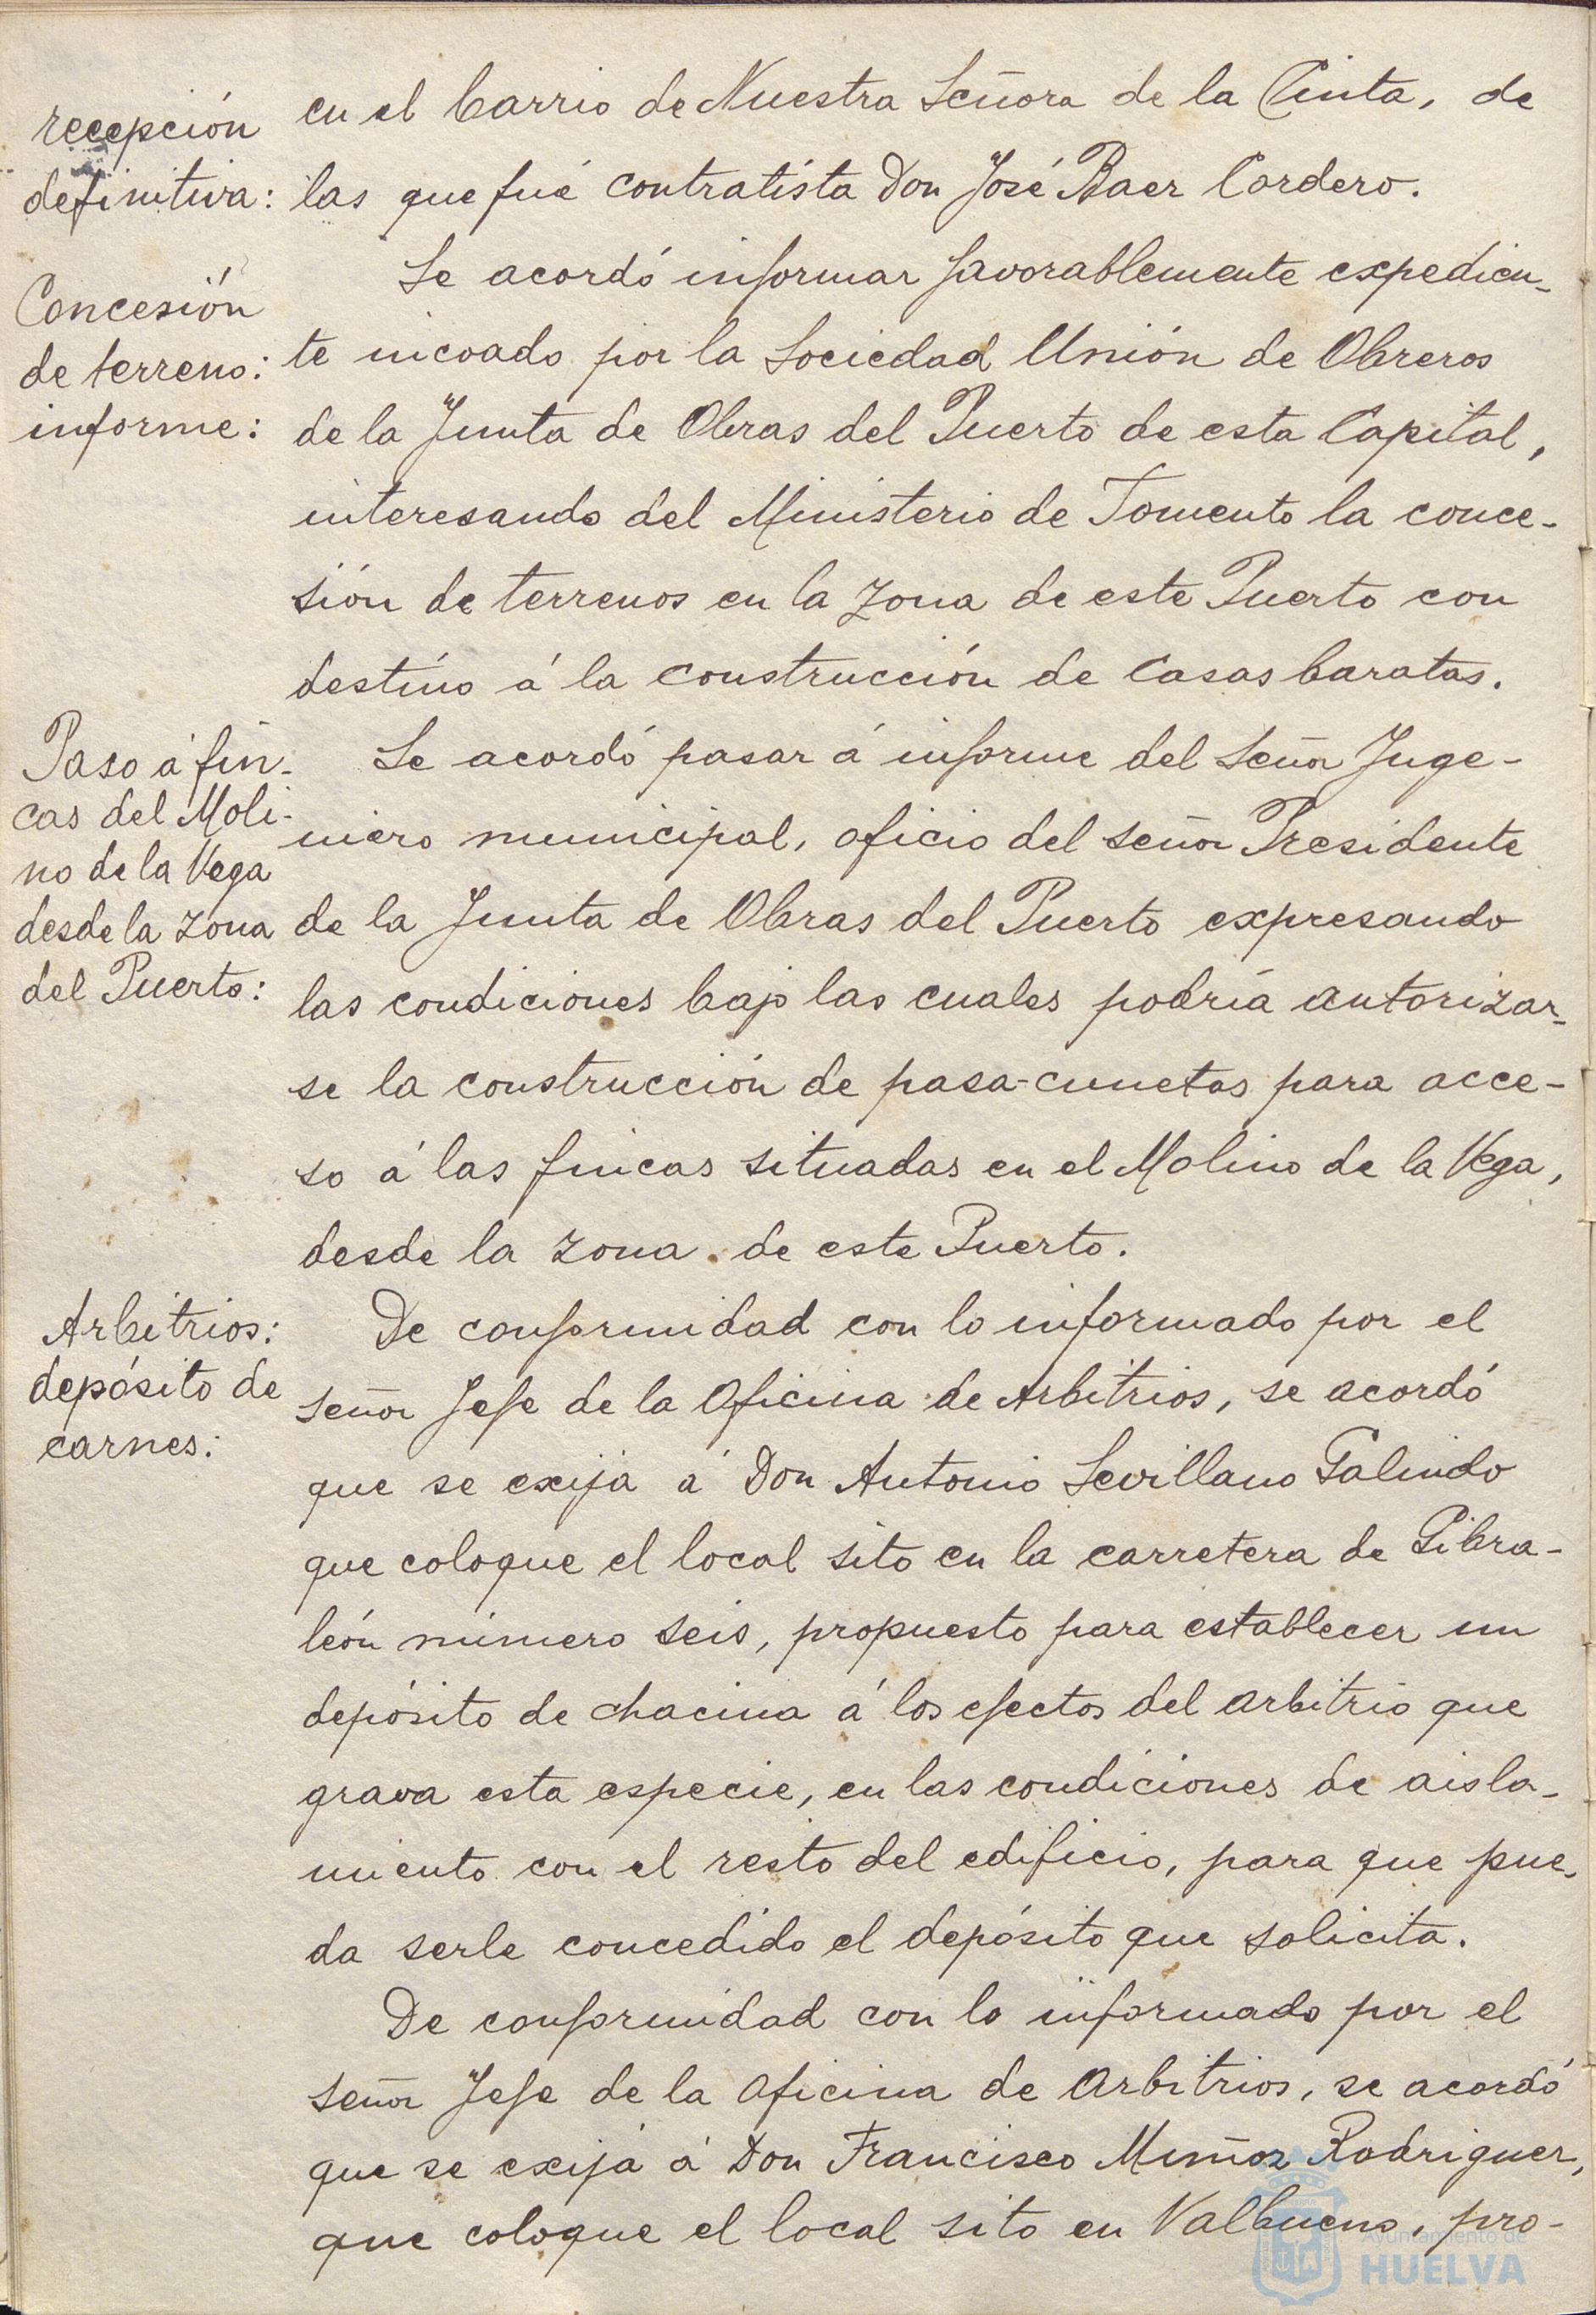 recepción
definitiva:
en el barrio de Nuestra Señora de la Cinta, de
las que fué contratista Don José Baer Cordero.
Concesión
de terreno:
informe:
Se acordó informar favorablemente expedien-
te incoado por la Sociedad Unión de Obreros
de la Junta de Obras del Puerto de esta Capital,
interesando del Ministerio de Fomento la conce-
sión de terrenos en la zona de este Puerto con
destino á la construcción de Casas baratas.
Paso á fin-
cas del Moli-
no de la Vega
desde la zona
del Puerto:
Se acordó pasar á informe del Señor Inge-
niero municipal, oficio del señor Presidente
de la Junta de Obras del Puerto expresando
las condiciones bajo las cuales podría autorizar-
se la construcción de pasa-cunetas para acce-
so á las fincas situadas en el Molino de la Vega,
desde la zona de este Puerto.
Arbitrios:
depósito de
carnes:
De conformidad con lo informado por el
señor Jefe de la Oficina de Arbitrios, se acordó
que se exija á Don Antonio Sevillano Galindo
que coloque el local sito en la carretera de Gibra-
león número seis, propuesto para establecer un
depósito de chacina á los efectos del arbitrio que
grava esta especie, en las condiciones de aisla-
miento con el resto del edificio, para que pue-
da serle concedido el depósito que solicita.
De conformidad con lo informado por el
señor Jefe de la Oficina de Arbitrios, se acordó
que se exija á Don Francisco Muñoz Rodriguez,
que coloque el local sito en Valbueno, pro-
Ayuntamiento de
HUELVA